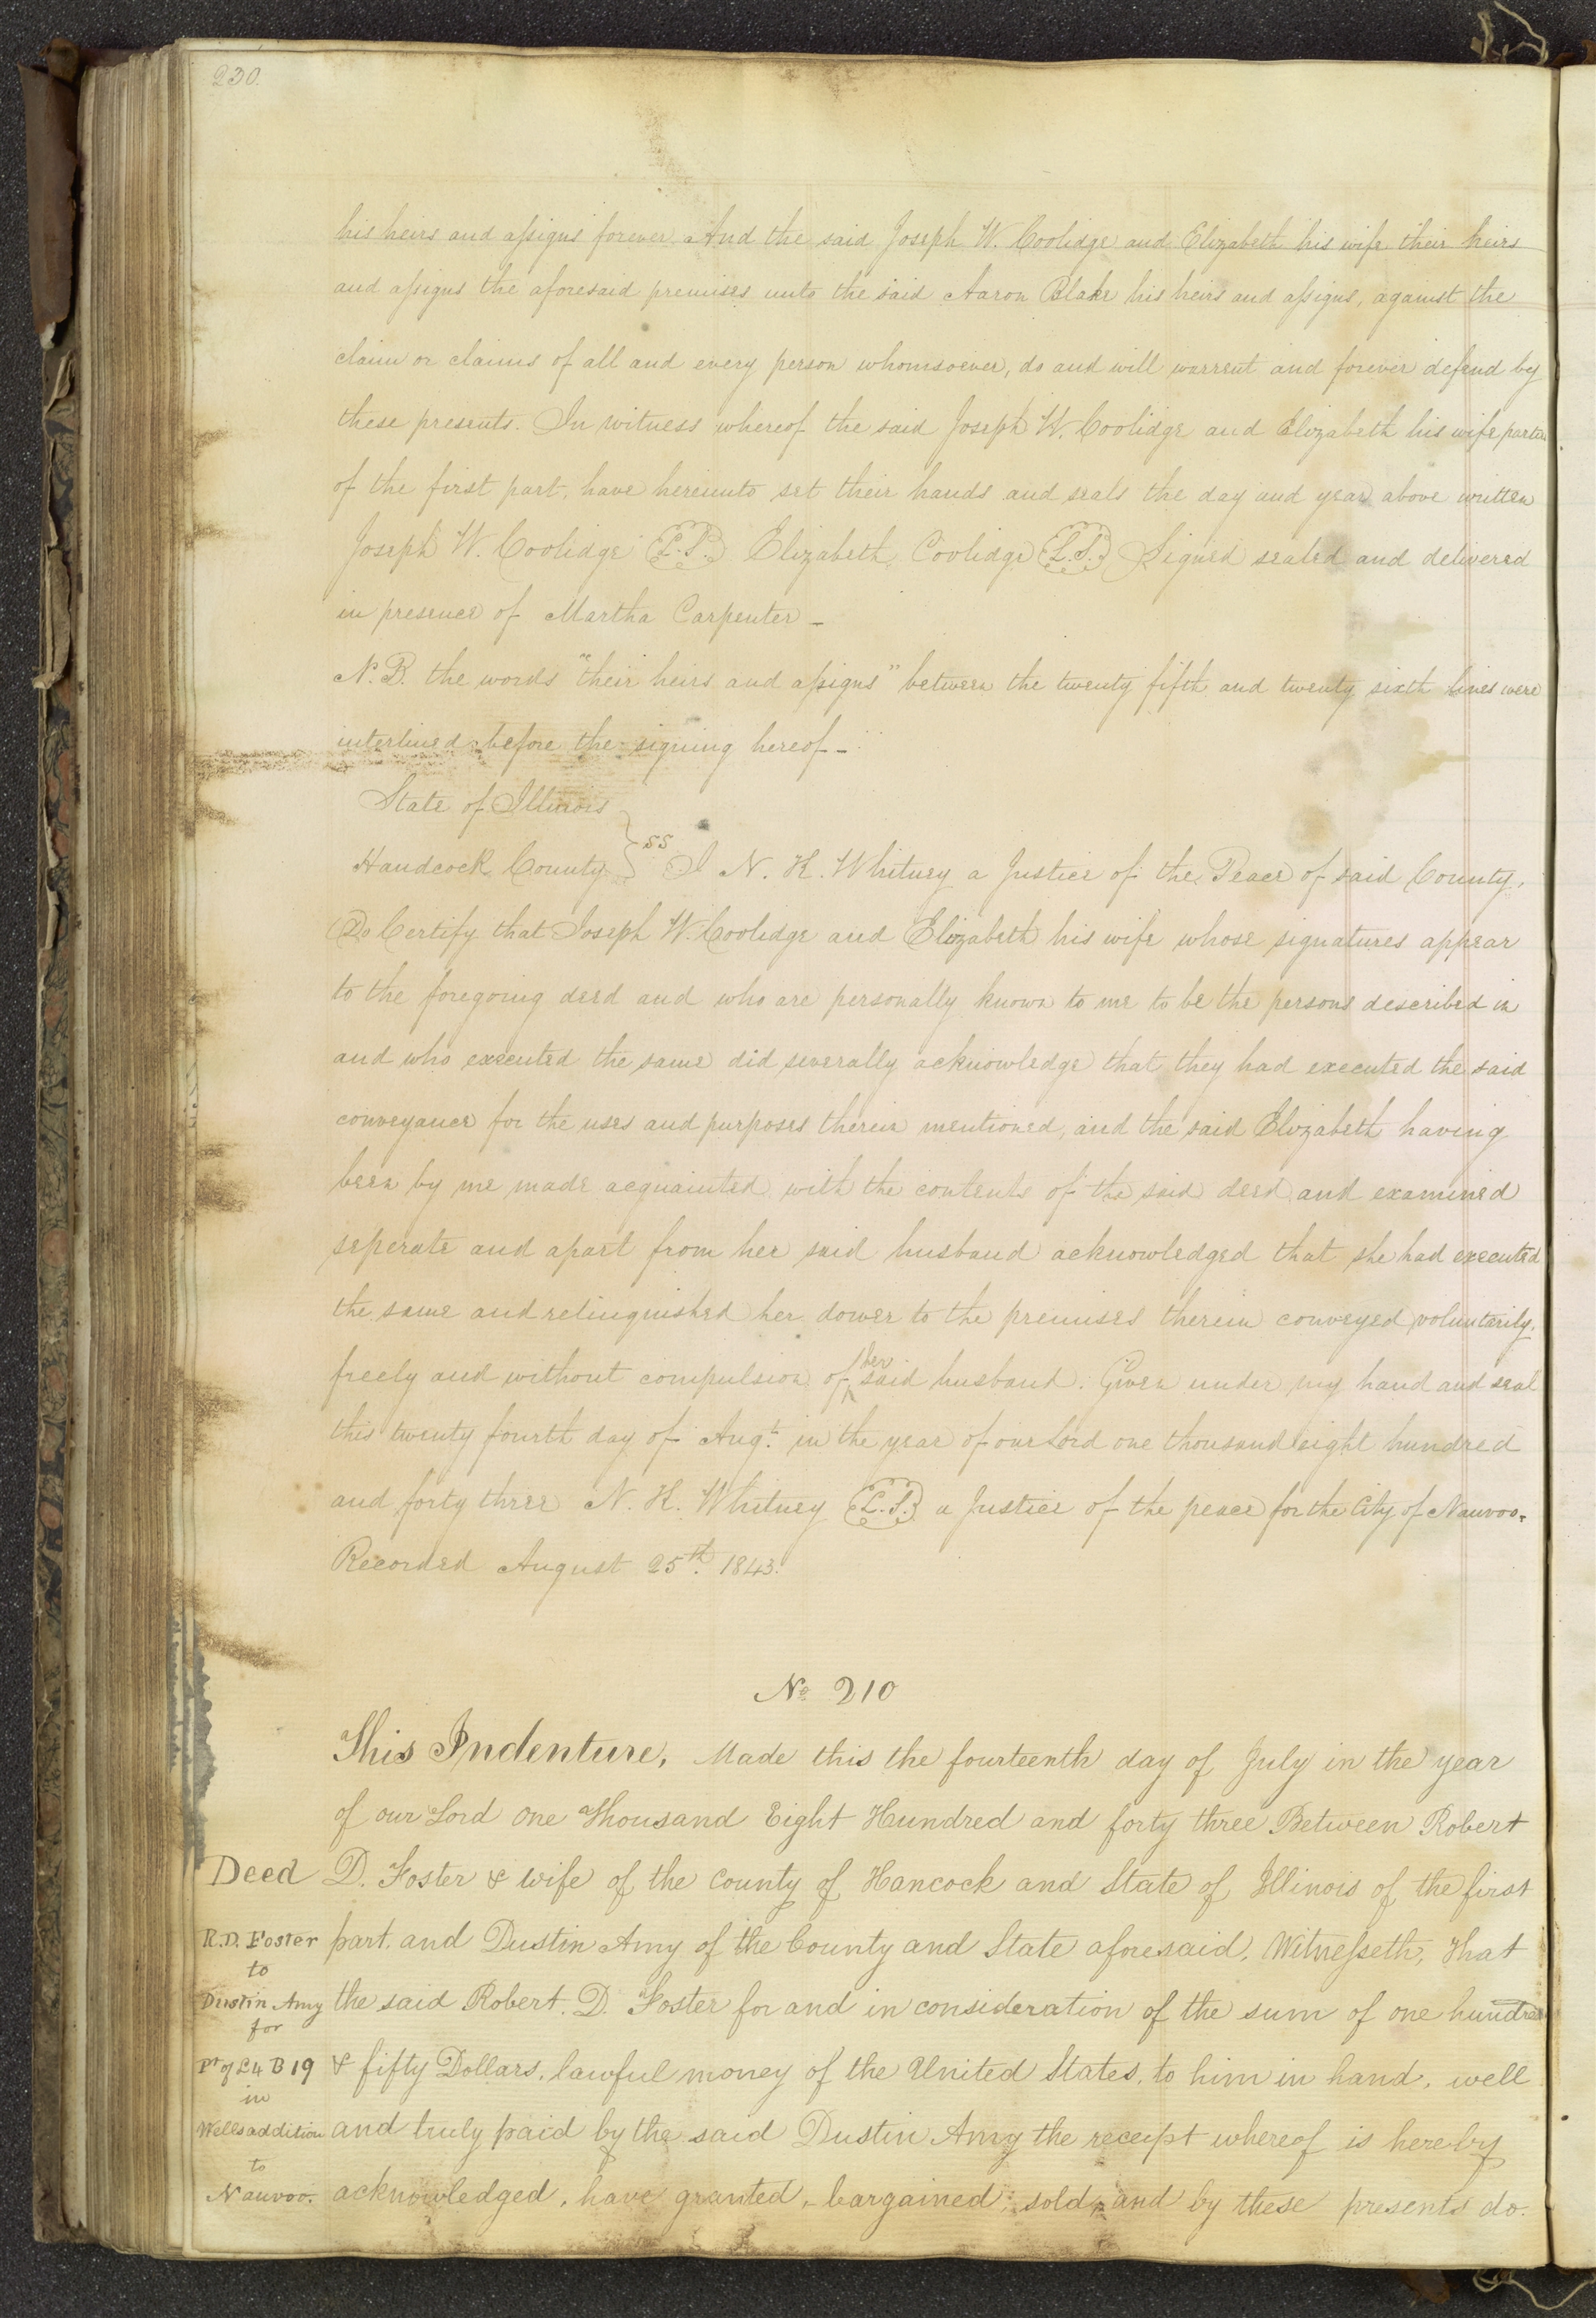 230.
his heirs and assigns forever And the said Joseph W. Coolidge and Elizabeth his wife their heirs
and assigns the aforesaid premises unto the said Aaron Blake his heirs and assigns, against the
claim or claims of all and every person whomsoever, do and will warrent and forever defend by
these presents. In witness whereof the said Joseph W. Coolidge and Elizabeth his wife parties
of the first part, have hereunto set their hands and seals the day and year above written
Joseph W. Coolidge (L.S.) Elizabeth Coolidge (L.S.) Signed sealed and delivered
in presence of Martha Carpenter –
N.B. the words "their heirs and assigns" between the twenty fifth and twenty sixth lines were
interlined before the signing hereof –
State of Illinois
Handcock County } ss I N. K. Whitney a Justice of the Peace of said County,
Do Certify that Joseph W. Coolidge and Elizabeth his wife whose signatures appear
to the foregoing deed and who are personally known to me to be the persons described in
and who executed the same did severally acknowledge that they had executed the said
conveyance for the uses and purposes therein mentioned, and the said Elizabeth having
been by me made acquainted with the contents of the said deed and examined
seperate and apart from her said husband acknowledged that she had executed
the same and relinquished her dower to the premises therein conveyed voluntarily,
freely and without compulsion of her said husband. Given under my hand and seal
this twenty fourth day of Augt. in the year of our Lord one thousand eight hundred
and forty three N. K. Whitney (L.S.) a Justice of the peace for the City of Nauvoo.
Recorded August 25th. 1843.
No 210
This Indenture, Made this the fourteenth day of July in the year
of our Lord One Thousand Eight Hundred and forty three Between Robert
Deed
D. Foster & wife of the County of Hancock and State of Illinois of the first
R.D. Foster
part. and Dustin Amy of the County and State aforesaid, Witnesseth, That
to
Dustin Amy
the said Robert. D. Foster for and in consideration of the sum of one hundred
for
Pt of L4 B19
& fifty Dollars, lawful money of the United States, to him in hand, well
in
Wells addition
and truly paid by the said Dustin Amy the receipt whereof is hereby
to
Nauvoo.
acknowledged, have granted, bargained, sold, and by these presents do.